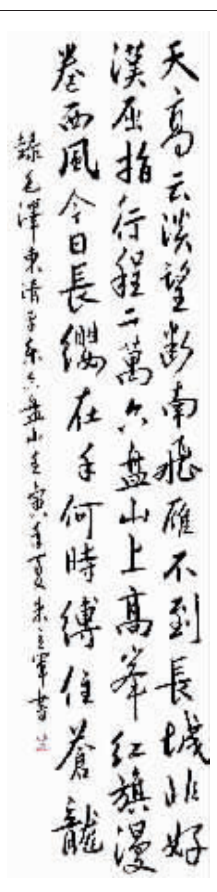 天高云淡望断南飛雁不到長城非好
漢屈指行程二萬六盘山上高峯紅旗漫
卷西風今日長纓在手何時縛住蒼龍
錄毛澤東清平乐六盘山壬寅年夏朱立軍書